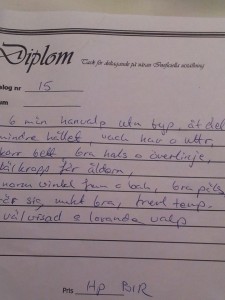 Diplom
Tack för deltagande på våran Inofficiella utställning
alog nr 15
um
6 mån hanvalp utm typ, åt det
mindre hållet, vack huv o uttr,
korr bett, bra hals o överlinje,
bålkropp för åldern,
norm vinkl fram o bak, bra päls
rör sig mkt bra, trevl temp.
välvisad o lovande valp
Pris Hp BIR